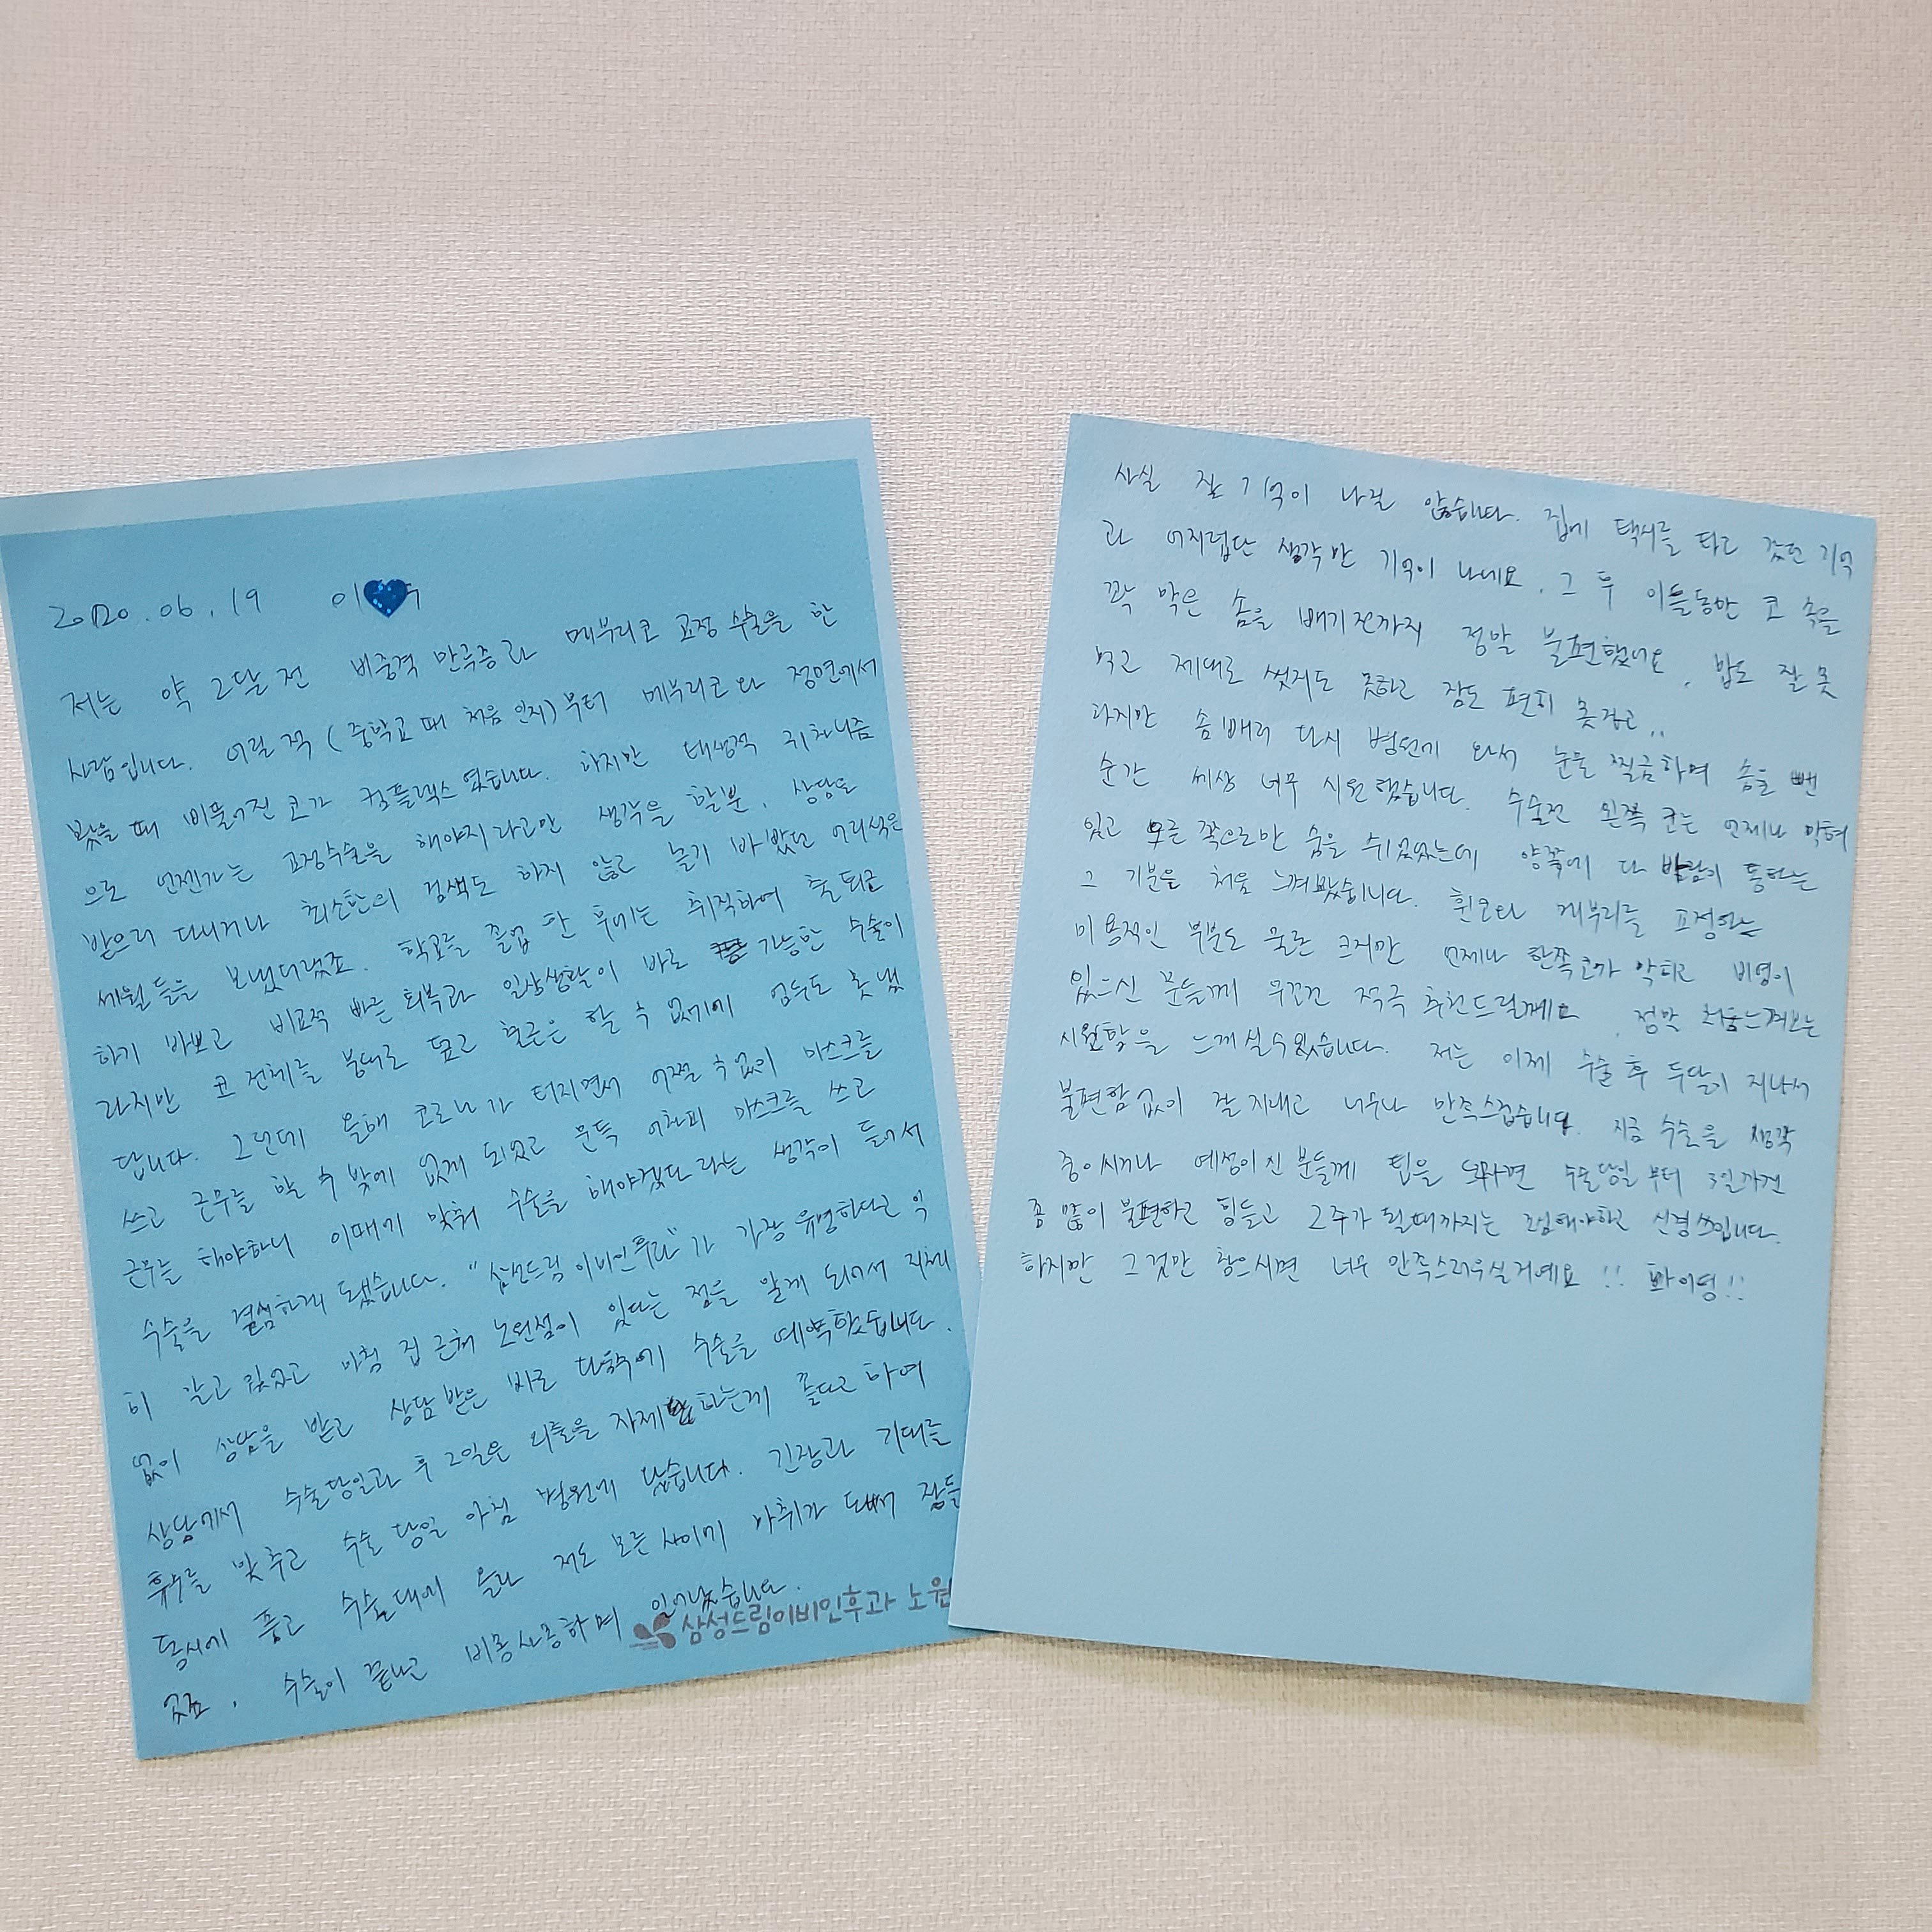 2020.06.19 이
저는 약 2달 전 비중격 만곡증과 메부리코 교정 수술을 한
사람입니다. 어릴 적 (중학교 때 처음 인지)부터 메부리코와 정면에서
봤을 때 비뚤어진 코가 컴플렉스였습니다. 하지만 태생적 귀차니즘
으로 언젠가는 교정수술을 해야지라고만 생각을 할뿐, 상담을
받으러 다니거나 최소한의 검색도 하지 않고 놀기 바빴던 어리석은
세월들을 보냈더랬죠. 학교를 졸업 한 후에는 취직하여 출퇴근
하기 바쁘고 비교적 빠른 회복과 일상생활이 바로 가능한 수술이
라지만 코 전체를 붕대로 덮고 출근은 할 수 없기에 엄두도 못 냈
답니다. 그런데 올해 코로나가 터지면서 어쩔 수 없이 마스크를
쓰고 근무를 할 수 밖에 없게 되었고 문득 어차피 마스크를 쓰고
근무를 해야하니 이때에 맞춰 수술을 해야겠다 라는 생각이 들어서
수술을 결심하게 됐습니다. "삼성드림이비인후과"가 가장 유명하다고 익
히 알고 있었고 마침 집 근처 노원점이 있다는 점을 알게 되어서 지체
없이 상담을 받고 상담 받은 바로 다음주에 수술을 예약했습니다.
상담에서 수술당일과 후 2일은 외출을 자제하는게 좋다고 하여
휴무를 맞추고 수술 당일 아침 병원에 갔습니다. 긴장과 기대를
동시에 품고 수술대에 올라 저도 모른 사이에 마취가 되어 잠들
었죠. 수술이 끝나고 비몽사몽하며 일어났습니다.
삼성드림이비인후과 노원
사실 잘 기억이 나질 않습니다. 집에 택시를 타고 갔던 기억
과 어지럽단 생각만 기억이 나네요. 그 후 이틀동안 코 속을
꽉 막은 솜을 빼기전까지 정말 불편했어요. 밥도 잘 못
먹고 제대로 씻지도 못하고 잠도 편히 못자고..
하지만 솜 빼러 다시 병원에 와서 눈물 찔끔하며 솜을 뺀
순간 세상 너무 시원했습니다. 수술전 왼쪽 코는 언제나 막혀
있고 오른쪽으로만 숨을 쉬었었는데 양쪽에 다 바람이 통하는
그 기분을 처음 느껴봤습니다. 휜코와 메부리를 교정하는
미용적인 부분도 물론 크지만 언제나 한쪽코가 막히고 비염이
있으신 분들께 무조건 적극 추천드릴게요. 정말 처음느껴보는
시원함을 느끼실수있습니다. 저는 이제 수술 후 두달이 지나서
불편함없이 잘지내고 너무나 만족스럽습니다. 지금 수술을 생각
중이시거나 예정이신 분들께 팁을 드리면 수술당일부터 3일까진
좀 많이 불편하고 힘들고 2주가 될때까지는 조심해야하고 신경쓰입니다.
하지만 그것만 참으시면 너무 만족스러우실거예요!! 화이팅!!